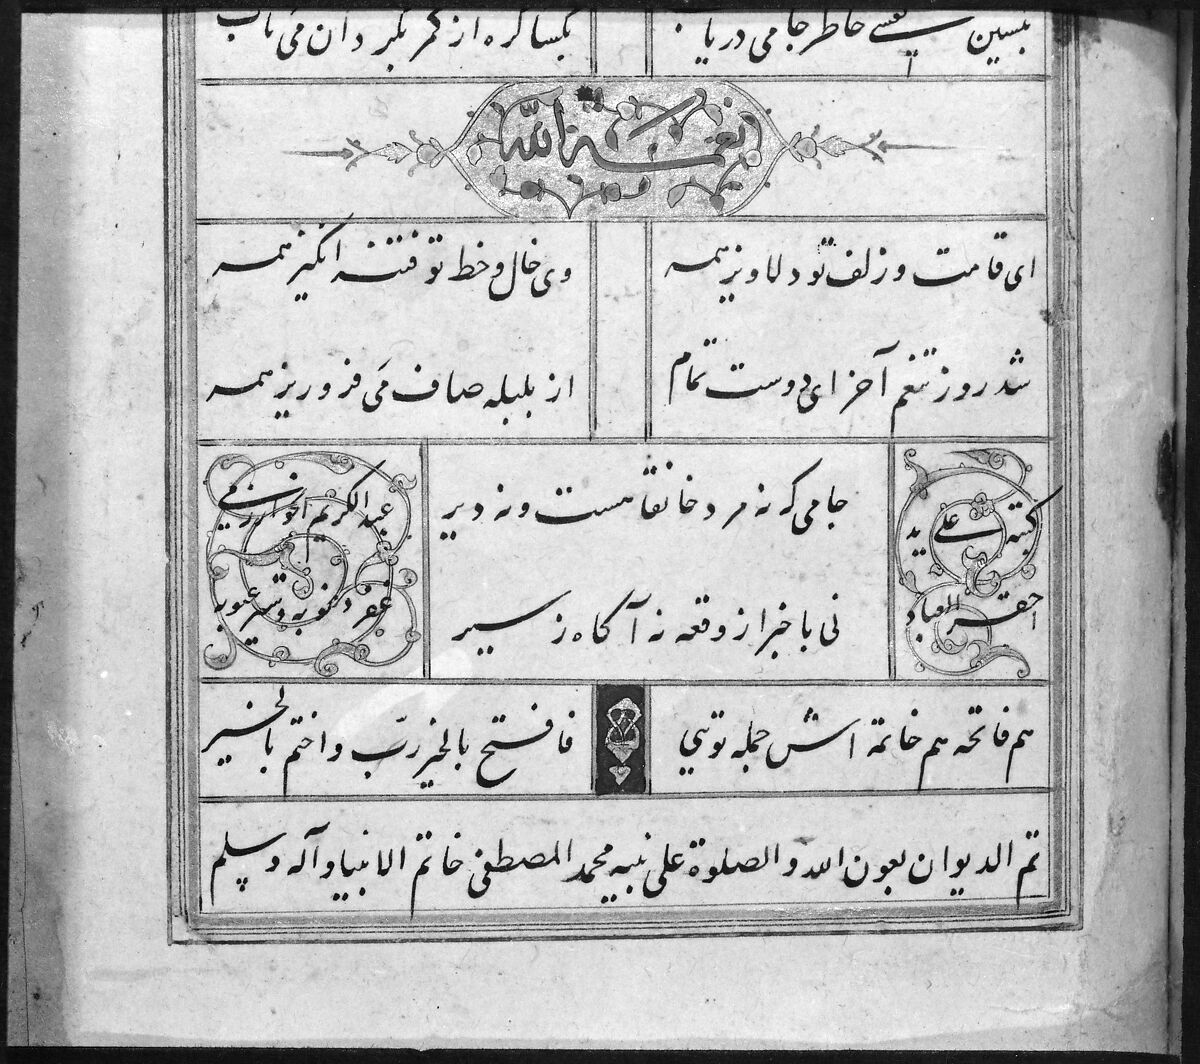 بنشین نفسی خاطر جامی دریاب بگشا گره از کمر بگردان می ناب
نعمة الله
ای قامت و زلف تو دلاویز همه وی خال و خط تو فتنه انگیز همه
شد روز تنعم آخر ای دوست تمام از بلبله صاف می فرو ریز همه
جامی که نه مرد خانقاهست و نه دیر
نی با خبر از وقعه نه آگاه ز سیر
کتبته علی ید
احقر العباد
عبد الکریم الخوارزمی
غفر ذنوبه و ستر عیوبه
هم فاتحه هم خاتمه اش جمله تویی فافتح بالخیر رب واختم بالخیر
تم الدیوان بعون الله والصلوة علی نبیه محمد المصطفی خاتم الانبیا وآله وسلم